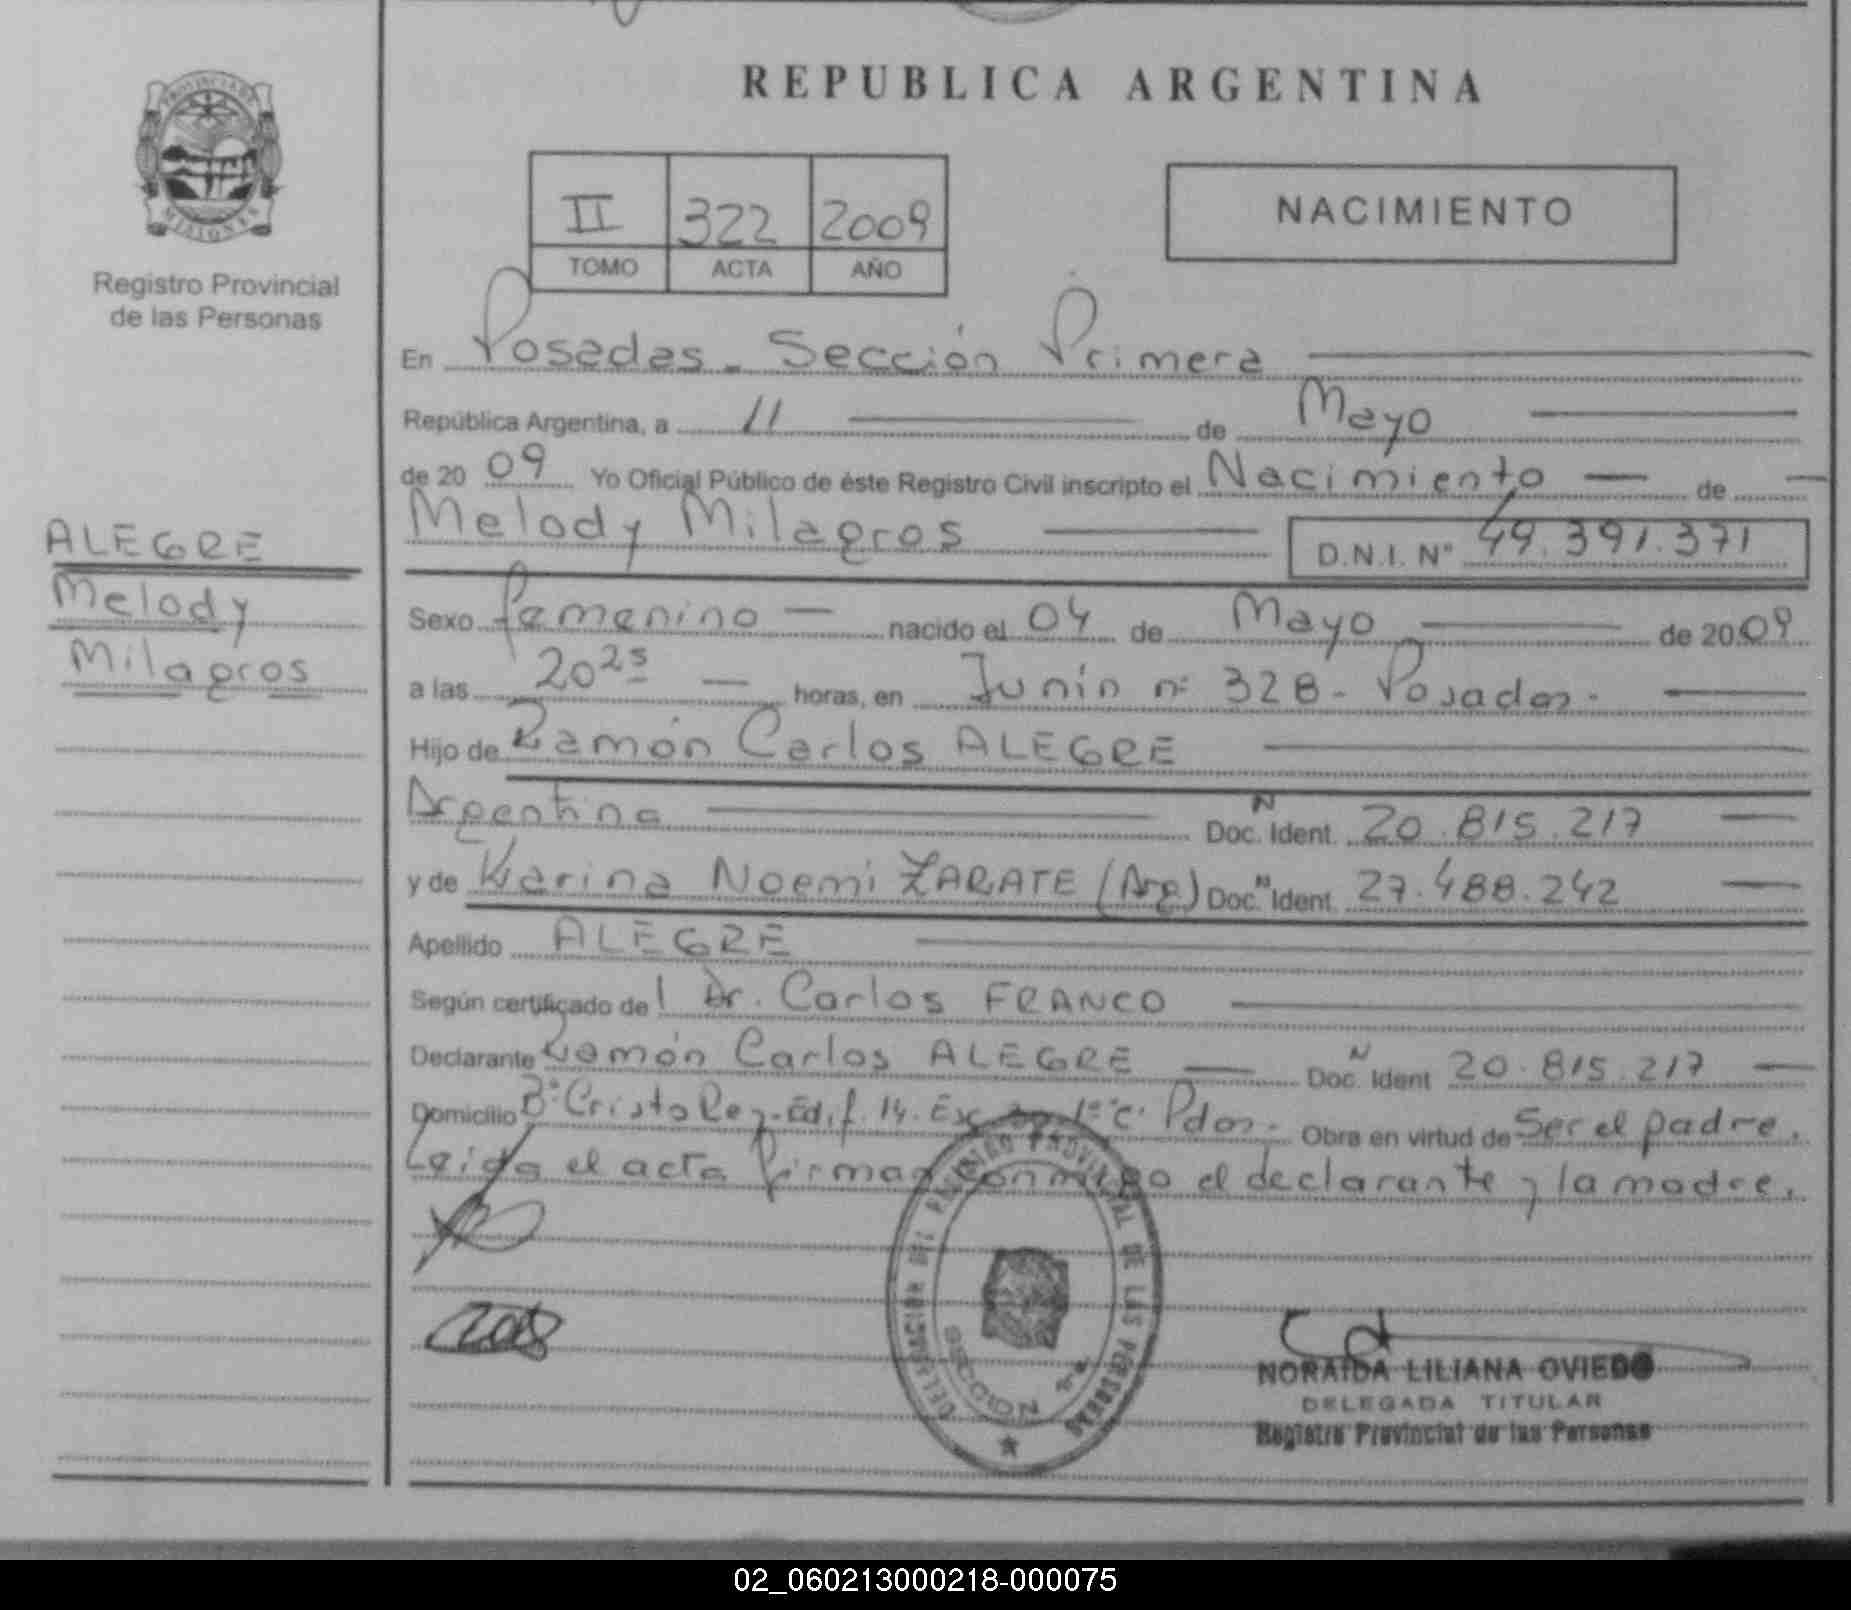 REPUBLICA ARGENTINA
PROVINCIA DE
MISIONES
Registro Provincial
de las Personas
II 322 2009
TOMO ACTA AÑO
NACIMIENTO
En Posadas - Sección Primera
República Argentina, a 11 de Mayo
de 2009 Yo Oficial Público de éste Registro Civil inscripto el Nacimiento de
Melody Milagros D.N.I. Nº 49.391.371
ALEGRE
Melody
Milagros
Sexo femenino nacido el 04 de Mayo de 2009
a las 20 25 horas, en Junín nº 328 - Posadas.
Hijo de Ramón Carlos ALEGRE
Argentina Doc. N Ident. 20.815.217
y de Karina Noemi ZARATE (Arg) Doc. N Ident. 27.488.242
Apellido ALEGRE
Según certificado del Dr. Carlos FRANCO
Declarante Ramón Carlos ALEGRE Doc. N Ident 20.815.217
Domicilio Bº Cristo Rey - Edif. 14. Esc 1º "C" Pdas. Obra en virtud de Ser el padre.
Leida el acta firman conmigo el declarante y la madre.
DELEGACION DEL REGISTRO PROVINCIAL DE LAS PERSONAS
SECCION 1ª
NORAIDA LILIANA OVIEDO
DELEGADA TITULAR
Registro Provincial de las Personas
02_060213000218-000075